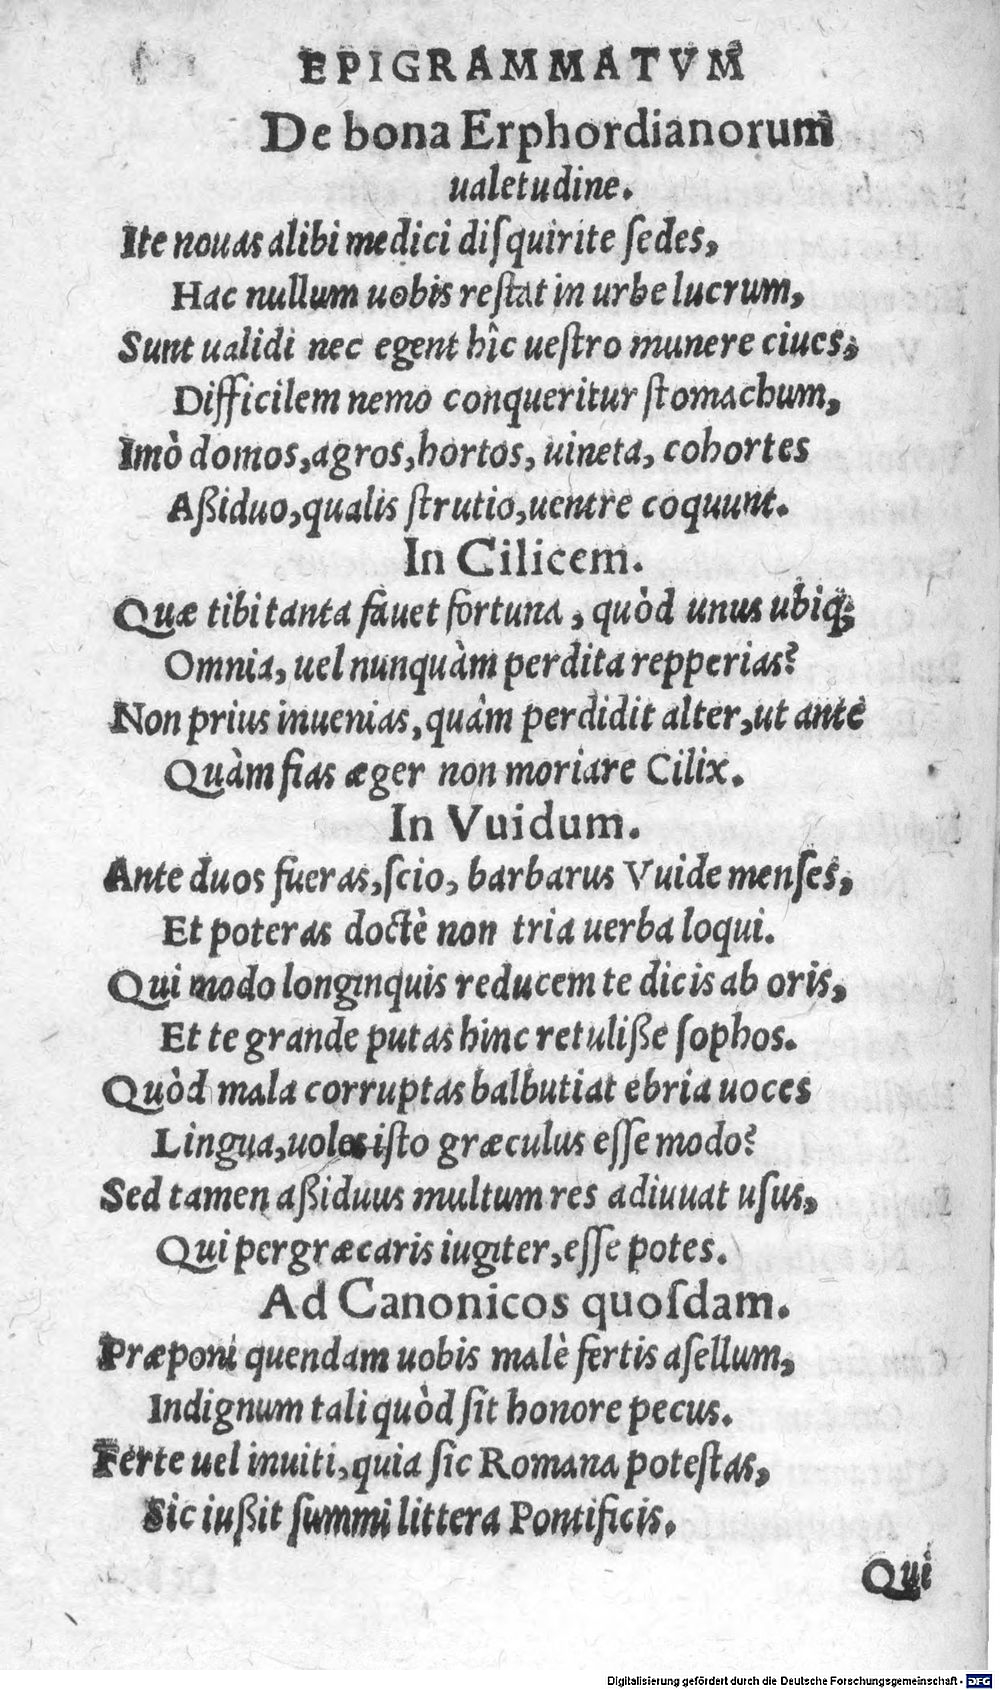 EPIGRAMMATVM
De bona Erphordianorum
ualetudine.
Ite nouas alibi medici diſquirite ſedes,
Hac nullum uobis reſtat in urbe lucrum,
Sunt ualidi nec egent hîc ueſtro munere ciues,
Difficilem nemo conqueritur ſtomachum,
Imò domos, agros, hortos, uineta, cohortes
Aßiduo, qualis ſtrutio, uentre coquunt.
In Cilicem.
Quæ tibi tanta fauet fortuna, quòd unus ubiq;
Omnia, uel nunquàm perdita repperias?
Non prius inuenias, quàm perdidit alter, ut antè
Quàm fias æger non moriare Cilix.
In Vuidum.
Ante duos fueras, ſcio, barbarus Vuide menſes,
Et poteras doctè non tria uerba loqui.
Qui modo longinquis reducem te dicis ab oris,
Et te grande putas hinc retuliße ſophos.
Quòd mala corruptas balbutiat ebria uoces
Lingua, uoles iſto græculus eſſe modo?
Sed tamen aßiduus multum res adiuuat uſus,
Qui pergræcaris iugiter, eſſe potes.
Ad Canonicos quoſdam.
Præponi quendam uobis malè fertis aſellum,
Indignum tali quòd ſit honore pecus.
Ferte uel inuiti, quia ſic Romana poteſtas,
Sic iußit ſummi littera Pontificis.
Qui
Digitalisierung gefördert durch die Deutsche Forschungsgemeinschaft - DFG